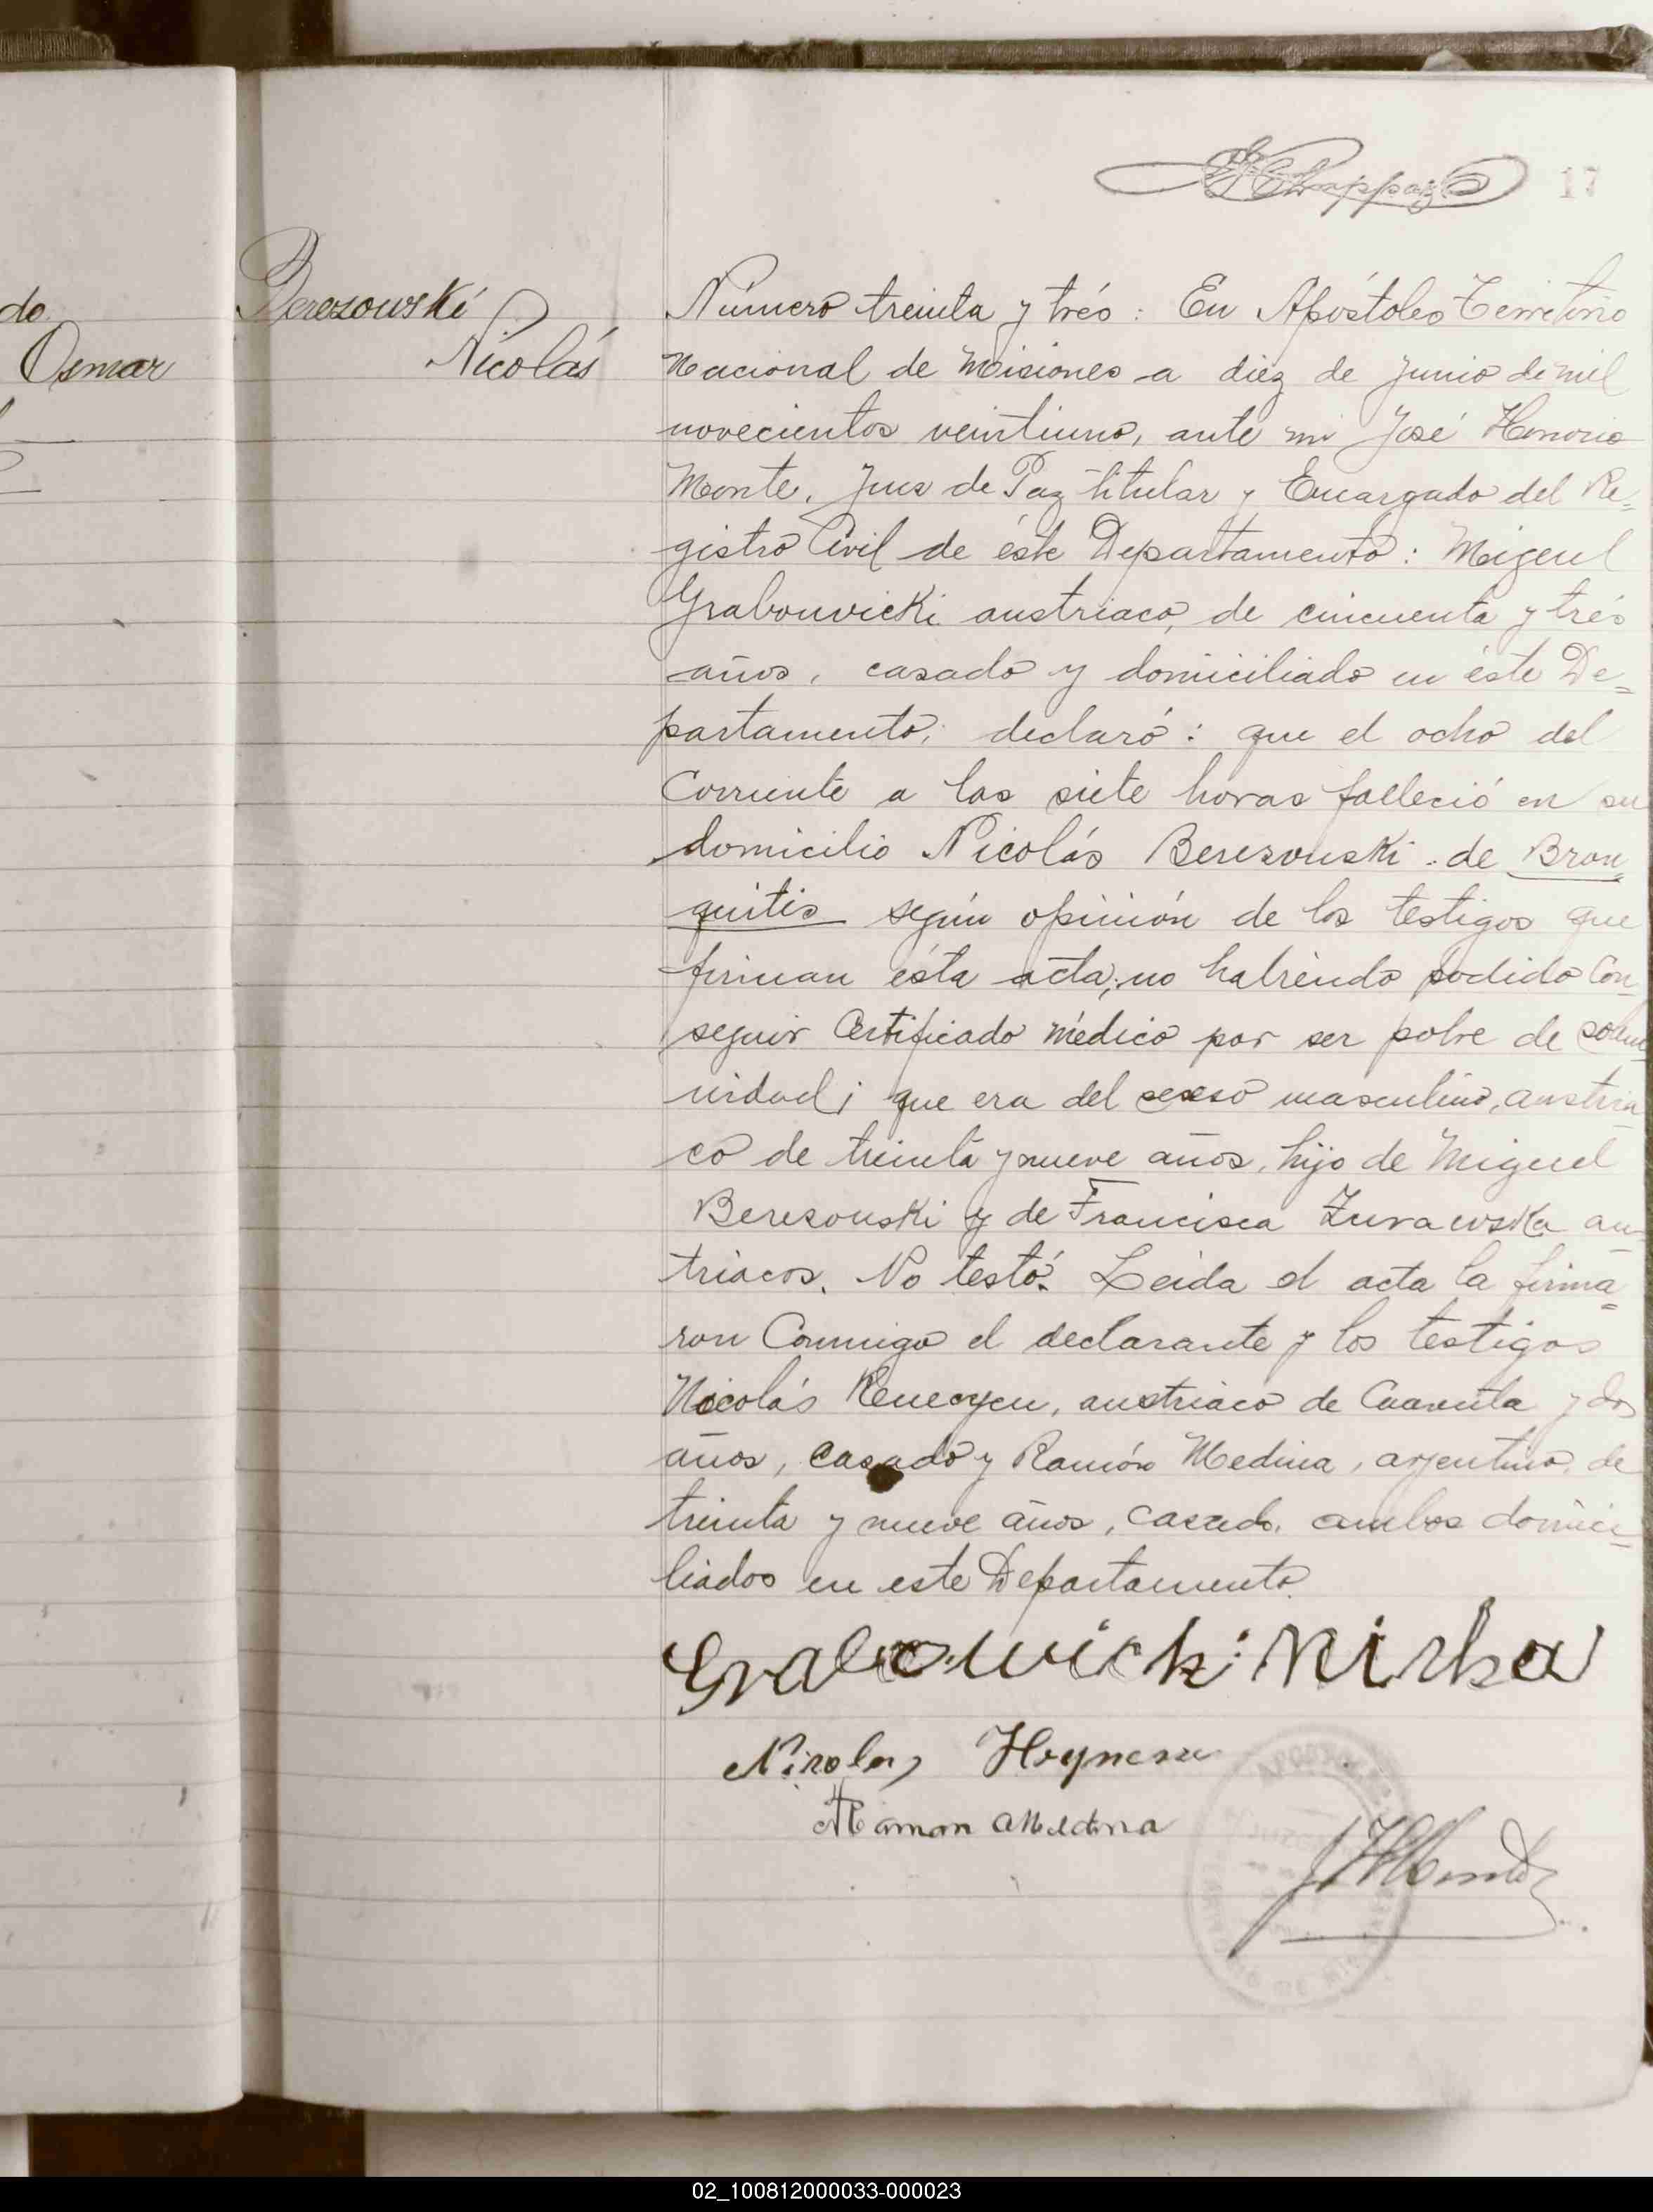 17
do
Osmar
Berezowski
Nicolás
Número treinta y trés: En Apóstoles Territorio
Nacional de Misiones a diez de Junio de mil
novecientos veintiuno, ante mi José Honorio
Monte, Juez de Paz titular y Encargado del Re=
gistro Civil de éste Departamento: Migeul
Grabouvicki austriaco, de cincuenta y trés
años, casado y domiciliado en éste De=
partamento; declaró: que el ocho del
Corriente a las siete horas falleció en su
domicilio Nicolás Beresouski de Bron
quitis según opinión de los testigos que
firman ésta acta; no habiendo podido Con
seguir Certificado médico por ser pobre de solem
nidad; que era del sexso masculino, austria
co de treinta y nueve años, hijo de Miguel
Beresouski y de Francisca Zurawska aus
triacos. No testó. Leida el acta la firma=
ron Conmigo el declarante y los testigos
Nicolás austriaco de Cuarenta y dos
años, casado y Ramón Medina, argentino, de
treinta y nueve años, casado, ambos domici=
liados en este Departamento.
Grabowicki
Nicolas
Ramon Medina
02_100812000033-000023